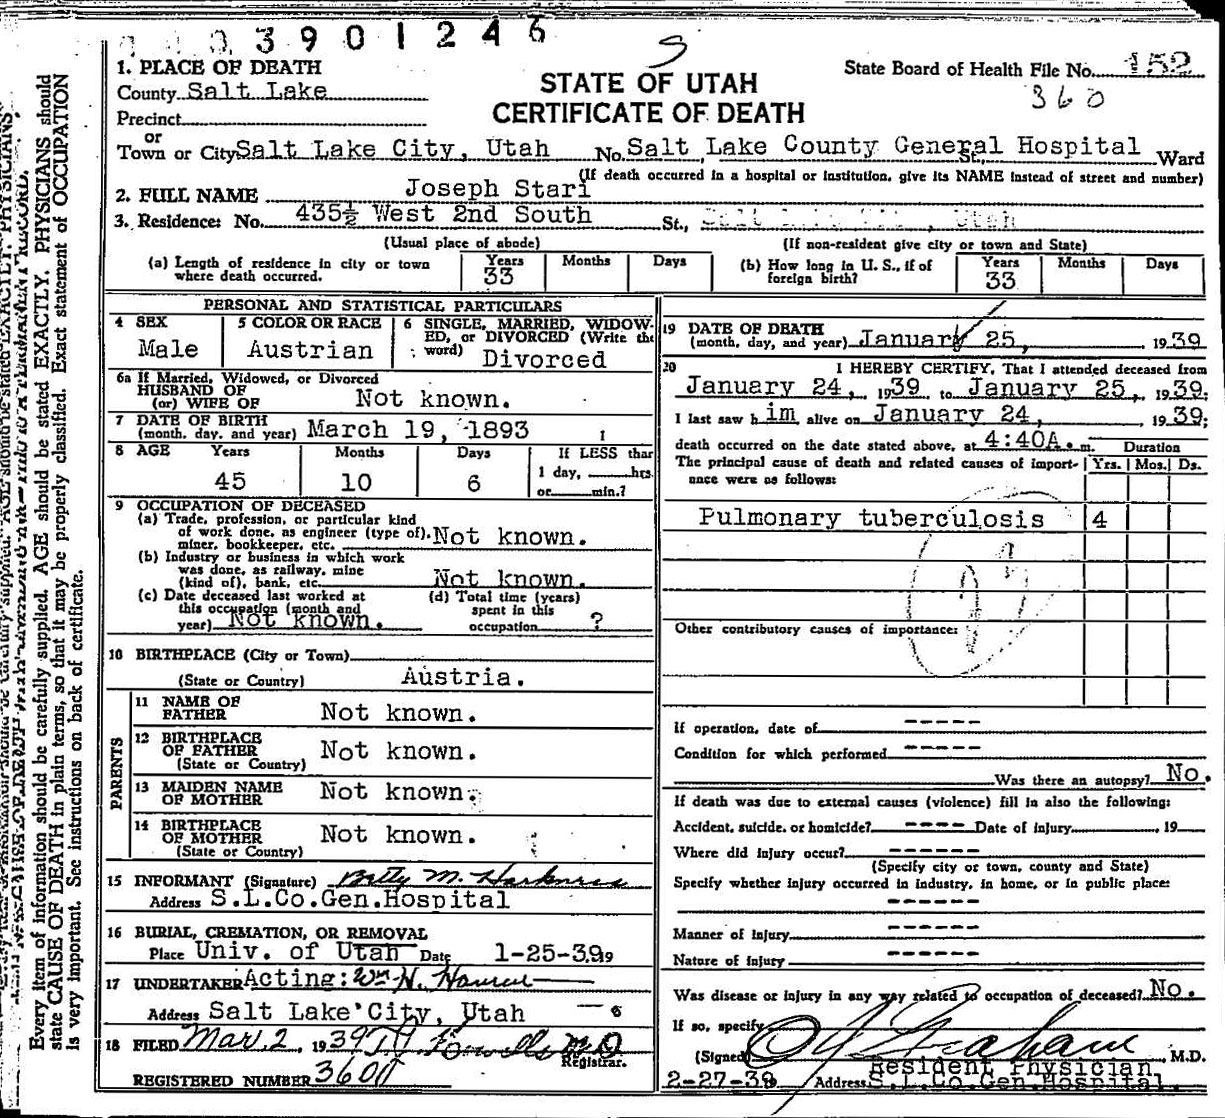 3901246
S
1. PLACE OF DEATH
County Salt Lake
Precinct
or
Town or City Salt Lake City, Utah No. Salt Lake County General Hospital St., Ward
STATE OF UTAH
CERTIFICATE OF DEATH
State Board of Health File No. 152
360
(If death occurred in a hospital or institution, give its NAME instead of street and number)
2. FULL NAME Joseph Stari
3. Residence: No. 435½ West 2nd South St., Salt Lake City, Utah
(Usual place of abode) (If non-resident give city or town and State)
(a) Length of residence in city or town where death occurred. Years 33 Months Days
(b) How long in U. S., if of foreign birth? Years 33 Months Days
PERSONAL AND STATISTICAL PARTICULARS
4 SEX Male
5 COLOR OR RACE Austrian
6 SINGLE, MARRIED, WIDOWED, or DIVORCED (Write the word) Divorced
6a If Married, Widowed, or Divorced
HUSBAND OF
(or) WIFE OF Not known.
7 DATE OF BIRTH
(month, day, and year) March 19, 1893
8 AGE Years 45 Months 10 Days 6 If LESS than 1 day, hrs. or min.?
9 OCCUPATION OF DECEASED
(a) Trade, profession, or particular kind
of work done, as engineer (type of), Not known.
miner, bookkeeper, etc.
(b) Industry or business in which work
was done, as railway, mine
(kind of), bank, etc. Not known.
(c) Date deceased last worked at
this occupation (month and
year) Not known.
(d) Total time (years)
spent in this
occupation ?
10 BIRTHPLACE (City or Town)
(State or Country) Austria.
PARENTS
11 NAME OF
FATHER Not known.
12 BIRTHPLACE
OF FATHER Not known.
(State or Country)
13 MAIDEN NAME
OF MOTHER Not known.
14 BIRTHPLACE
OF MOTHER Not known.
(State or Country)
15 INFORMANT (Signature) Betty M. Harkness
Address S.L.Co.Gen.Hospital
16 BURIAL, CREMATION, OR REMOVAL
Place Univ. of Utah Date 1-25-39
17 UNDERTAKER Acting: Wm. H.
Address Salt Lake City, Utah
18 FILED Mar. 2, 1939 M D
Registrar.
REGISTERED NUMBER 360
19 DATE OF DEATH
(month, day, and year) January 25, 1939
20 I HEREBY CERTIFY, That I attended deceased from
January 24, 1939 to January 25, 1939.
I last saw him alive on January 24, 1939;
death occurred on the date stated above, at 4:40A.m.
Duration
The principal cause of death and related causes of importance were as follows: Yrs. Mos. Ds.
Pulmonary tuberculosis 4
Other contributory causes of importance:
If operation, date of -----
Condition for which performed -----
Was there an autopsy? No.
If death was due to external causes (violence) fill in also the following:
Accident, suicide, or homicide? ---- Date of injury , 19
Where did injury occur? -----
(Specify city or town, county and State)
Specify whether injury occurred in industry, in home, or in public place:
------
Manner of injury ------
Nature of injury ------
Was disease or injury in any way related to occupation of deceased? No.
If so, specify
(Signed) Graham, M.D.
Resident Physician
2-27-39 Address S.L.Co.Gen.Hospital.
Every item of information should be carefully supplied. AGE should be stated EXACTLY. PHYSICIANS should
state CAUSE OF DEATH in plain terms, so that it may be properly classified. Exact statement of OCCUPATION
is very important. See instructions on back of certificate.